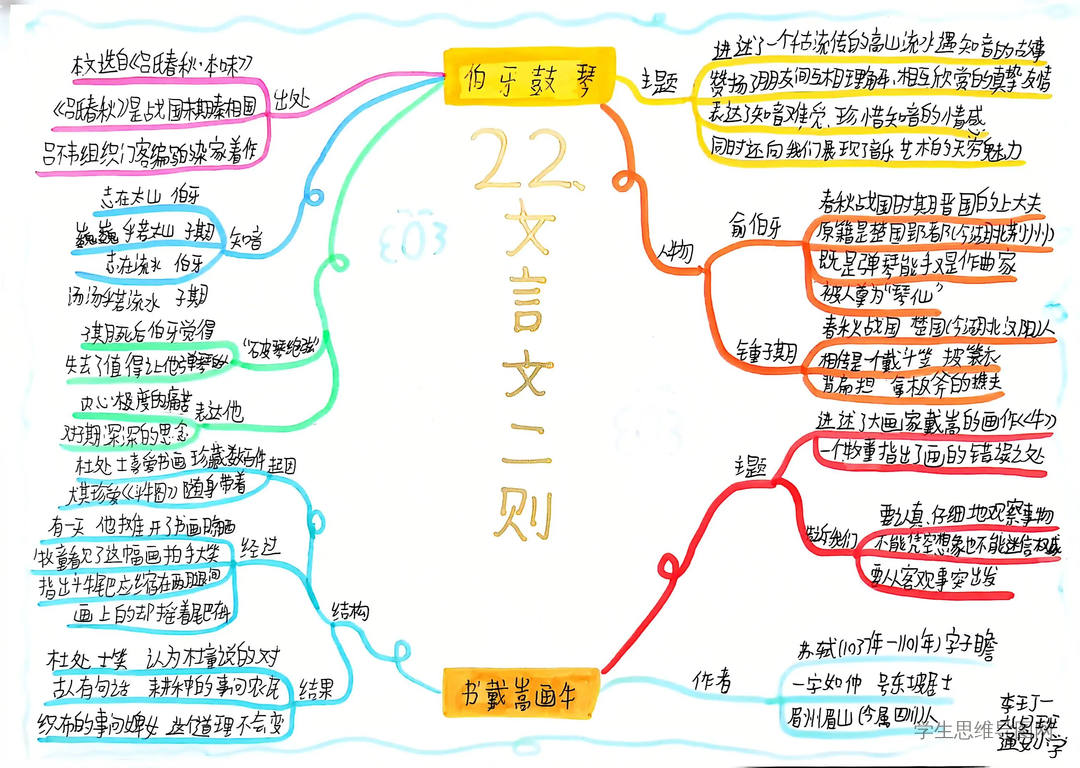 伯牙鼓琴
22、文言文二则
书戴嵩画牛
出处
本文选自《吕氏春秋·本味》
《吕氏春秋》是战国末期秦相国
吕不韦组织门客编的杂家著作
知音
志在太山 伯牙
巍巍乎若太山 子期
志在流水 伯牙
汤汤乎若流水 子期
"破琴绝弦"
子期死后伯牙觉得
失去了值得让他弹琴的人
表达他
内心极度的痛苦
对子期深深的思念
主题
讲述了一个千古流传的高山流水遇知音的故事
赞扬了朋友间互相理解,相互欣赏的真挚友情
表达了知音难觅、珍惜知音的情感
同时还向我们展现了音乐艺术的无穷魅力
人物
俞伯牙
春秋战国时期晋国的上大夫
原籍是楚国郢都(今湖北荆州)
既是弹琴能手又是作曲家
被人尊为"琴仙"
锺子期
春秋战国 楚国(今湖北汉阳)人
相传是个戴斗笠 披蓑衣
背扁担 拿板斧的樵夫
结构
起因
杜处士喜爱书画 珍藏数百件
尤其珍爱《斗牛图》随身带着
经过
有一天 他摊开了书画晾晒
牧童看见了这幅画拍手大笑
指出斗牛尾巴应缩在两腿间
画上的却摇着尾巴在斗
结果
杜处士笑 认为牧童说的对
古人有句话 耕种的事问农民
织布的事问婢女 这个道理不会变
主题
讲述了大画家戴嵩的画作《牛》
一个牧童指出了画的错误之处
告诉我们
要认真、仔细地观察事物
不能凭空想象也不能迷信权威
要从客观事实出发
作者
苏轼(1037年—1101年)字子瞻
一字和仲 号东坡居士
眉州眉山(今属四川)人
学生思维导图网